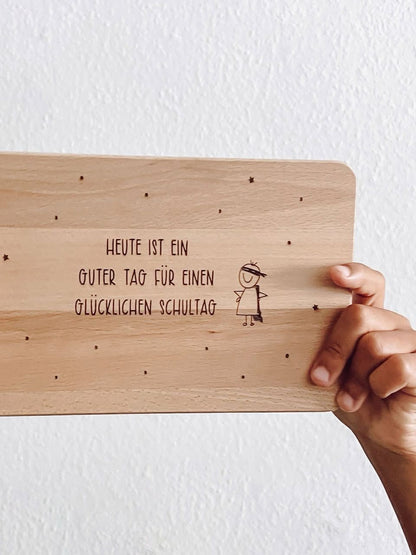 HEUTE IST EIN
GUTER TAG FÜR EINEN
GLÜCKLICHEN SCHULTAG